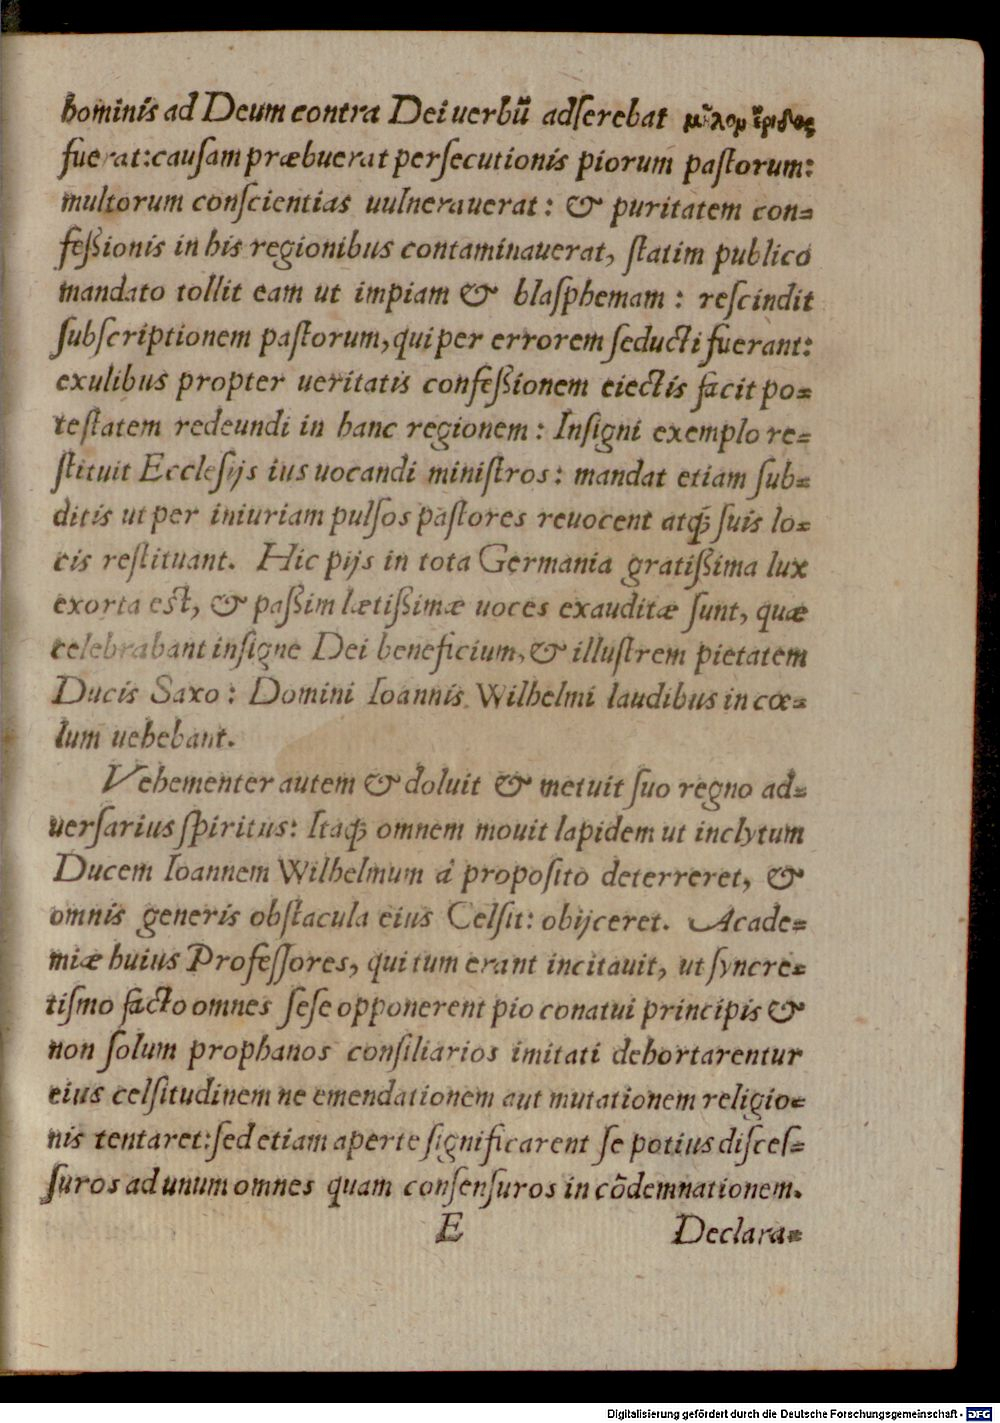 hominis ad Deum contra Dei uerbũ adſerebat μῆλομ ἔριδος
fuerat: cauſam præbuerat perſecutionis piorum paſtorum:
multorum conſcientias uulnerauerat: & puritatem con=
feßionis in his regionibus contaminauerat, ſtatim publico
mandato tollit eam ut impiam & blaſphemam: reſcindit
ſubſcriptionem paſtorum, qui per errorem ſeducti fuerant:
exulibus propter ueritatis confeßionem eiectis facit po=
teſtatem redeundi in hanc regionem: Inſigni exemplo re=
ſtituit Eccleſijs ius uocandi miniſtros: mandat etiam ſub=
ditis ut per iniuriam pulſos paſtores reuocent atq́ꝫ ſuis lo=
cis reſtituant. Hic pijs in tota Germania gratißima lux
exorta eſt, & paßim lætißimæ uoces exauditæ ſunt, quæ
celebrabant inſigne Dei beneficium, & illuſtrem pietatem
Ducis Saxo: Domini Ioannis Wilhelmi laudibus in cœ=
lum uehebant.
Vehementer autem & doluit & metuit ſuo regno ad=
uerſarius ſpiritus: Itaq́ꝫ omnem mouit lapidem ut inclytum
Ducem Ioannem Wilhelmum à propoſito deterreret, &
omnis generis obſtacula eius Celſit: obijceret. Acade=
miæ huius Profeſſores, qui tum erant incitauit, ut ſyncre=
tiſmo facto omnes ſeſe opponerent pio conatui principis &
non ſolum prophanos conſiliarios imitati dehortarentur
eius celſitudinem ne emendationem aut mutationem religio=
nis tentaret: ſed etiam aperte ſignificarent ſe potius diſceſ=
ſuros ad unum omnes quam conſenſuros in cõdemnationem.
E Declara=
Digitalisierung gefördert durch die Deutsche Forschungsgemeinschaft - DFG